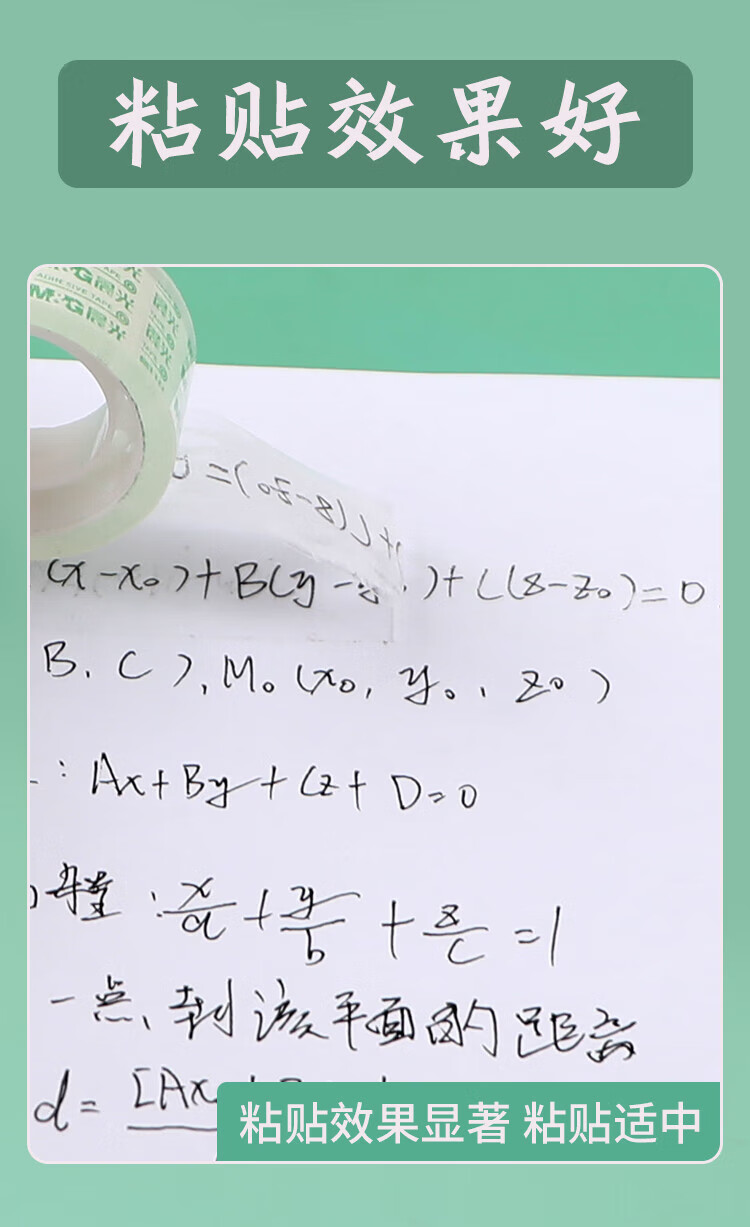 粘贴效果好
M&G晨光
ADHESIVE TAPE
M&G晨光
(x-x₀)+B(y-   )+C(z-z₀)=0
B, C), M₀(x₀, y₀, z₀)
: Ax+By+Cz+D=0
: x/a + y/b + z/c = 1
一点、到该平面的距离
d= [Ax
粘贴效果显著 粘贴适中